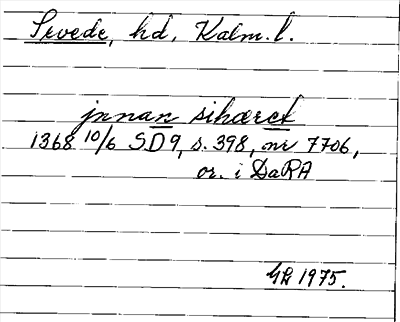 Sevede, hd, Kalm. l.
jnnan sihæret
1368 10/6 SD9, s. 398, nr 7706,
or. i DaRA
1975.